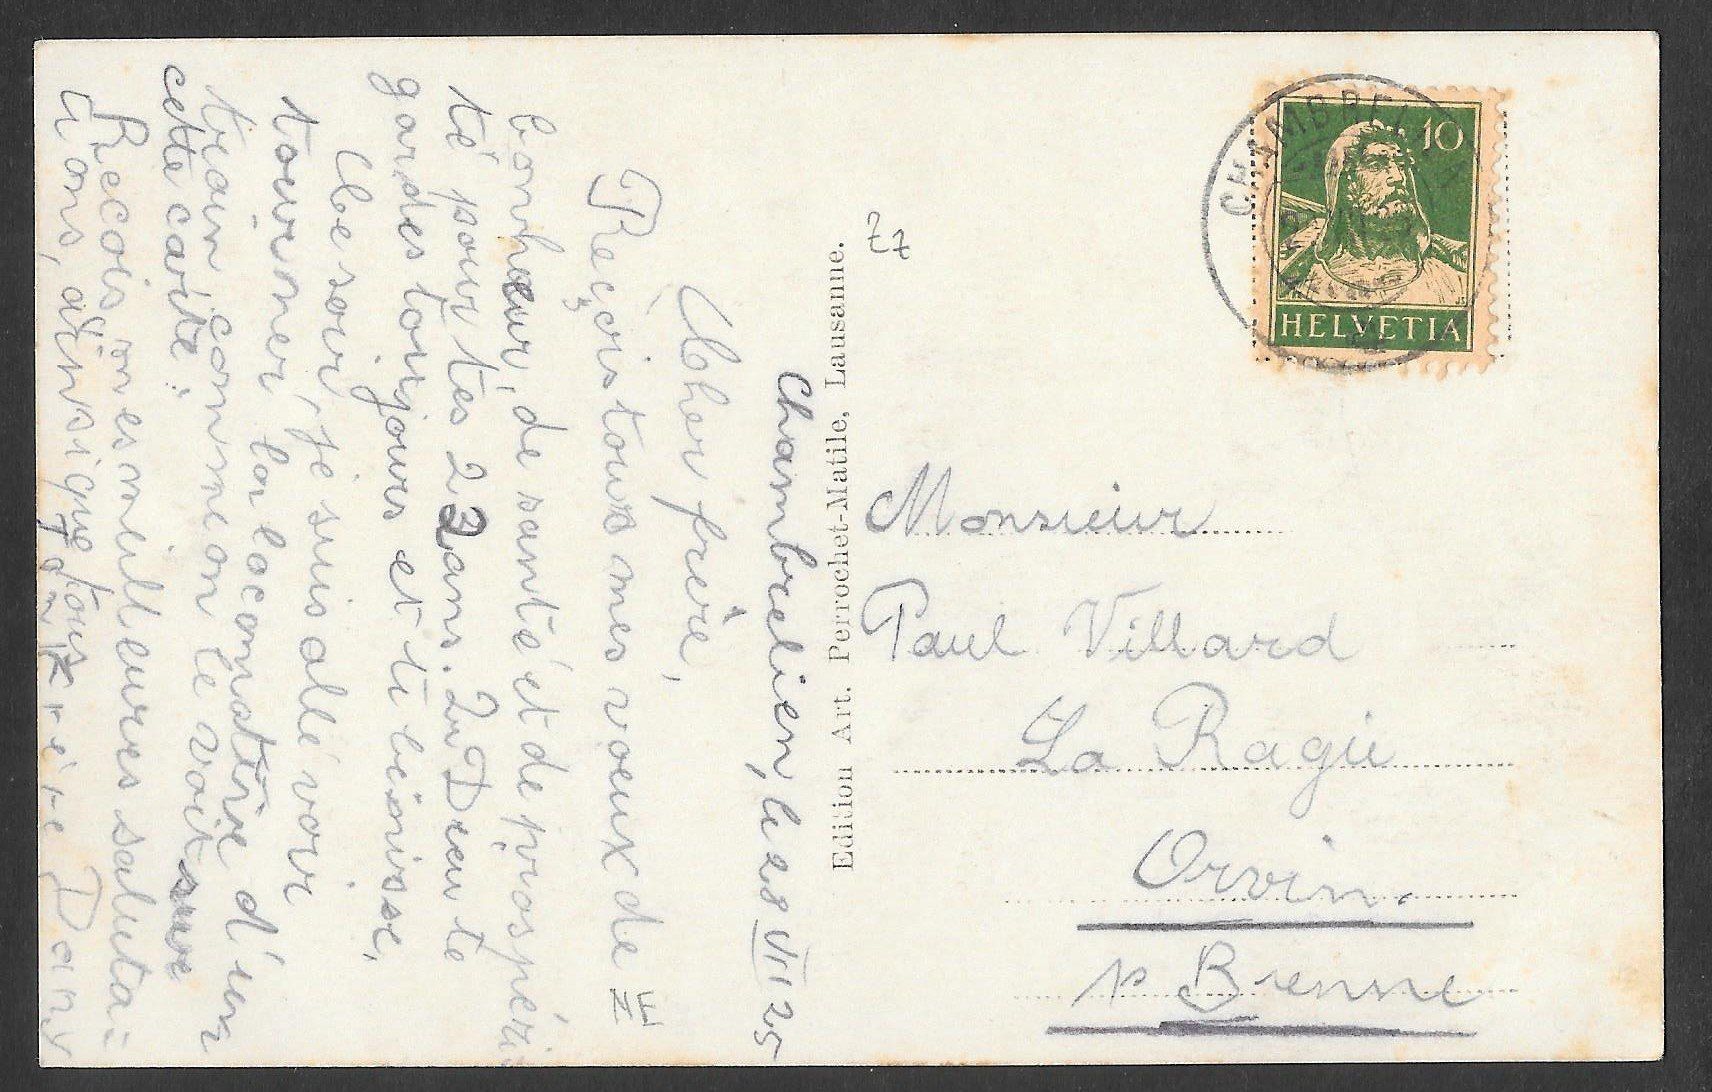 Chambrelien, le 28 VII 25
Cher frère,
Reçois tous mes voeux de
bonheur, de santé et de prospéri
té pour tes 22 ans. Qu Dieu te
gardes toujours et te bénisse,
Ce soir, je suis allé voir
tourner la locomotive d'un
train comme on le voit sur
cette carte.
Reçois mes meilleures saluta-
tions, ainsi que tous
Dany
Edition Art. Perrochet-Matile, Lausanne.
77
CHAMBREL
10
HELVETIA
Monsieur
Paul Villard
La Ragie
Orvin.
p. Bienne